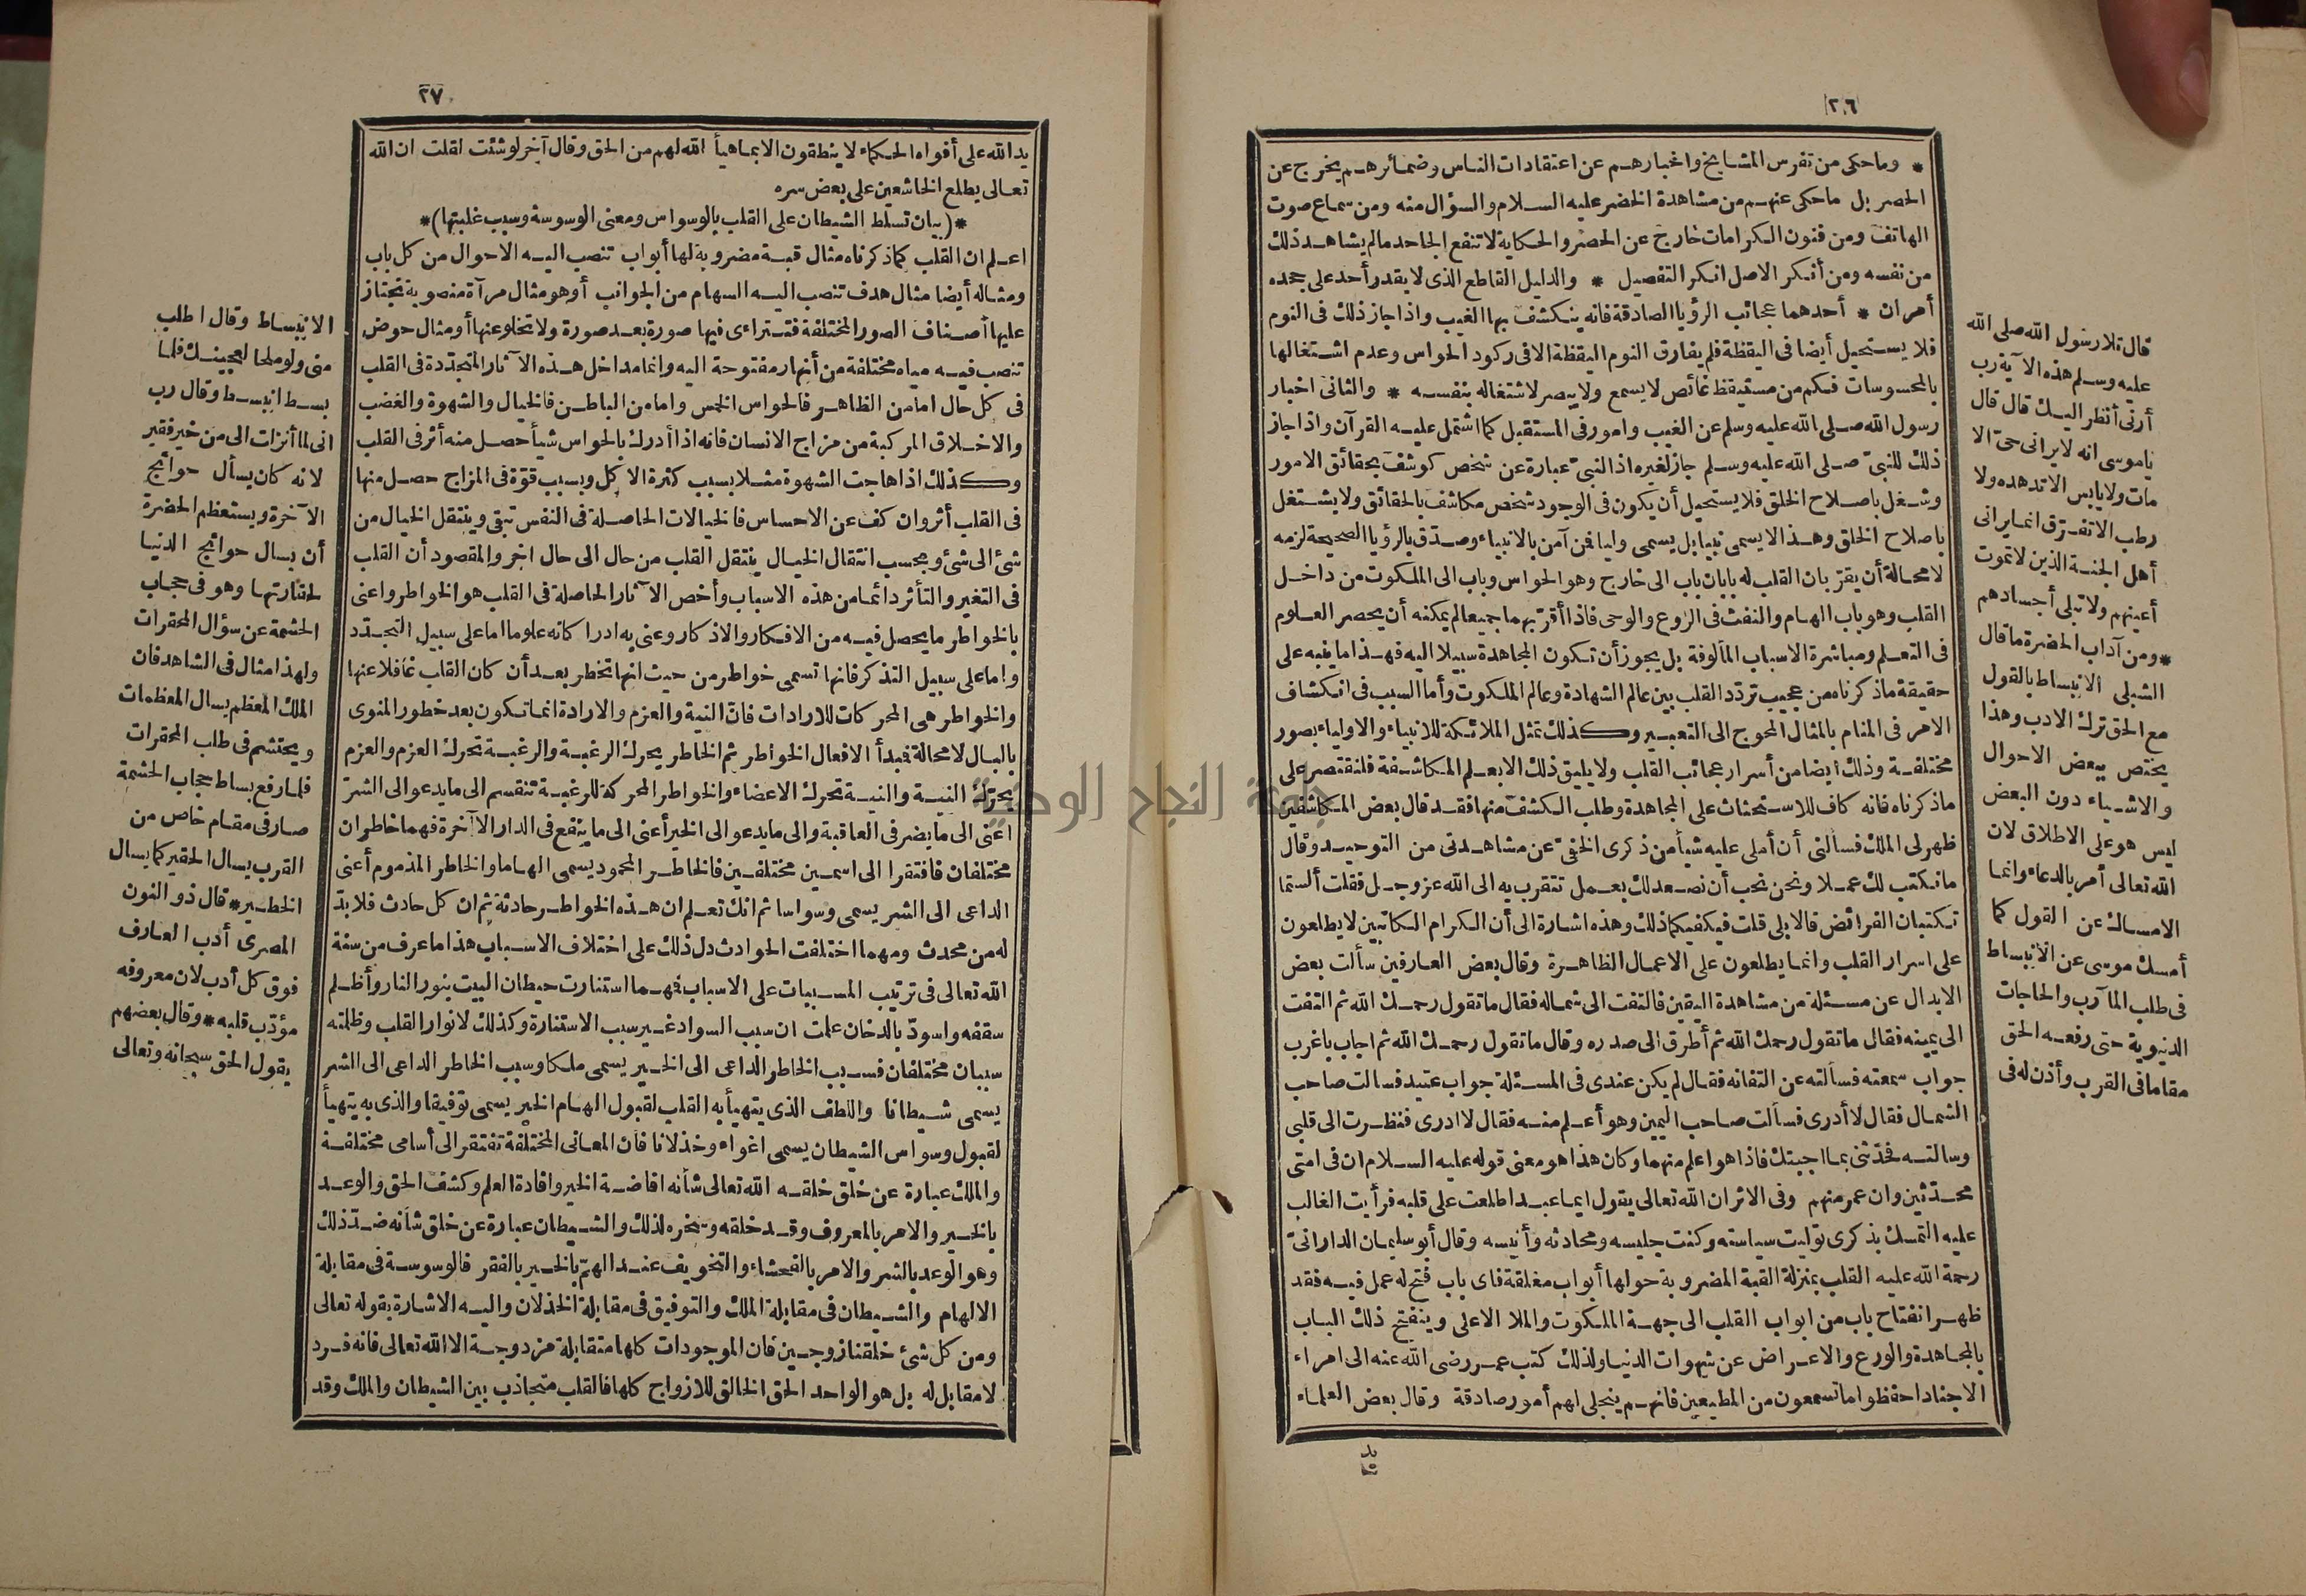 ٢٦
* وما حكى من تفرس المشايخ واخبارهم عن اعتقادات الناس وضمائرهم يخرج عن
الحصر بل ماحكى عنهم من مشاهدة الخضر عليه السلام والسؤال منه ومن سماع صوت
الهاتف ومن فنون الكرامات خارج عن الحصر والحكاية لا تنفع الجاحد مالم يشاهد ذلك
من نفسه ومن أنكر الاصل انكر التفصيل * والدليل القاطع الذى لا يقدر أحد على جحده
أمران * أحدهما عجائب الرؤيا الصادقة فانه ينكشف بها الغيب واذا جاز ذلك فى النوم
فلا يستحيل أيضا فى اليقظة فلم يفارق النوم اليقظة الا فى ركود الحواس وعدم اشتغالها
بالمحسوسات فكم من مستيقظ غائص لا يسمع ولا يبصر لاشتغاله بنفسه * والثانى اخبار
رسول الله صلى الله عليه وسلم عن الغيب وامور فى المستقبل كما اشتمل عليه القرآن واذا جاز
ذلك للنبىّ صلى الله عليه وسلم جاز لغيره اذ النبىّ عبارة عن شخص كوشف بحقائق الامور
وشغل باصلاح الخلق فلا يستحيل أن يكون فى الوجود شخص مكاشف بالحقائق ولا يشتغل
باصلاح الخلق وهذا لا يسمى نبيا بل يسمى وليا فمن آمن بالانبياء وصدّق بالرؤيا الصحيحة لزمه
لا محالة أن يقرّ بان القلب له بابان باب الى خارج وهو الحواس وباب الى الملكوت من داخل
القلب وهو باب الهام والنفث فى الروع والوحى فاذا أقرّ بهما جميعا لم يمكنه أن يحصر العلوم
فى التعلم ومباشرة الاسباب المألوفة بل يجوز أن تكون المجاهدة سبيلا اليه فهذا ما ينبه على
حقيقة ماذكرناه من عجيب تردّد القلب بين عالم الشهادة وعالم الملكوت وأما السبب فى انكشاف
الامر فى المنام بالمثال المحوج الى التعبير وكذلك تمثل الملائكة للانبياء والاولياء بصور
مختلفة وذلك أيضا من أسرار عجائب القلب ولا يليق ذلك الا بعلم المكاشفة فلنقتصر على
ماذكرناه فانه كاف للاستحثاث على المجاهدة وطلب الكشف منها فقد قال بعض المكاشفين
ظهر لى الملك فسألنى أن أملى عليه شيأ من ذكرى الخفىّ عن مشاهدتى من التوحيد وقال
مانكتب لك عملا ونحن نحب أن نصعد لك بعمل تتقرب به الى الله عز وجل فقلت ألستما
تكتبان الفرائض قالا بلى قلت فيكفيكما ذلك وهذه اشارة الى أن الكرام الكاتبين لا يطلعون
على اسرار القلب وانما يطلعون على الاعمال الظاهرة وقال بعض العارفين سألت بعض
الابدال عن مسئلة من مشاهدة اليقين فالتفت الى شماله فقال ماتقول رحمك الله ثم التفت
الى يمينه فقال ماتقول رحمك الله ثم أطرق الى صدره وقال ماتقول رحمك الله ثم اجاب باغرب
جواب سمعته فسألته عن التفاته فقال لم يكن عندى فى المسئلة جواب عتيد فسالت صاحب
الشمال فقال لا أدرى فسألت صاحب اليمين وهو أعلم منه فقال لا ادرى فنظرت الى قلبى
وسالته فحدّثنى بما اجبتك فاذا هو اعلم منهما وكان هذا هو معنى قوله عليه السلام ان فى امتى
محدّثين وان عمر منهم وفى الاثر ان الله تعالى يقول ايما عبد اطلعت على قلبه فرأيت الغالب
عليه التمسك بذكرى توليت سياسته وكنت جليسه ومحادثه وأنيسه وقال أبو سليمان الدارانىّ
رحمة الله عليه القلب بمنزلة القبة المضروبة حولها أبواب مغلقة فاى باب فتح له عمل فيه فقد
ظهر انفتاح باب من ابواب القلب الى جهة الملكوت والملا الاعلى وينفتح ذلك الباب
بالمجاهدة والورع والاعراض عن شهوات الدنيا ولذلك كتب عمر رضى الله عنه الى امراء
الاجناد احفظوا ماتسمعون من المطيعين فانهم ينجلى لهم أمور صادقة وقال بعض العلماء
يد
قال تلا رسول الله صلى الله
عليه وسلم هذه الآية رب
أرنى أنظر اليك قال قال
ياموسى انه لا يرانى حىّ الا
مات ولا يابس الا تدهده ولا
رطب الا تفرّق انما يرانى
أهل الجنة الذين لا تموت
أعينهم ولا تبلى أجسادهم
* ومن آداب الحضرة ماقال
الشبلى الانبساط بالقول
مع الحق ترك الادب وهذا
يختص ببعض الاحوال
والاشياء دون البعض
ليس هو على الاطلاق لان
الله تعالى أمر بالدعاء وانما
الامساك عن القول كما
أمسك موسى عن الانبساط
فى طلب المآرب والحاجات
الدنيوية حتى رفعه الحق
مقاما فى القرب وأذن له فى
٢٧
يد الله على أفواه الحكماء لا ينطقون الا بما هيأ الله لهم من الحق وقال آخر لو شئت لقلت ان الله
تعالى يطلع الخاشعين على بعض سره
*(بيان تسلط الشيطان على القلب بالوسواس ومعنى الوسوسة وسبب غلبتها)*
اعلم ان القلب كما ذكرناه مثال قبة مضروبة لها أبواب تنصب اليه الاحوال من كل باب
ومثاله أيضا مثال هدف تنصب اليه السهام من الجوانب أو هو مثال مرآة منصوبة تجتاز
عليها أصناف الصور المختلفة فتتراءى فيها صورة بعد صورة ولا تخلو عنها أو مثال حوض
تنصب فيه مياه مختلفة من أنهار مفتوحة اليه وانما مداخل هذه الآثار المتجدّدة فى القلب
فى كل حال اما من الظاهر فالحواس الخمس واما من الباطن فالخيال والشهوة والغضب
والاخلاق المركبة من مزاج الانسان فانه اذا أدرك بالحواس شيأ حصل منه أثر فى القلب
وكذلك اذا هاجت الشهوة مثلا بسبب كثرة الاكل وبسبب قوّة فى المزاج حصل منها
فى القلب أثر وان كف عن الاحساس فالخيالات الحاصلة فى النفس تبقى وينتقل الخيال من
شئ الى شئ وبحسب انتقال الخيال ينتقل القلب من حال الى حال اخر والمقصود أن القلب
فى التغير والتأثر دائما من هذه الاسباب وأخص الآثار الحاصلة فى القلب هو الخواطر واعنى
بالخواطر ما يحصل فيه من الافكار والاذكار وعنى به ادراكاته علوما اما على سبيل التجدّد
واما على سبيل التذكر فانها تسمى خواطر من حيث انها تخطر بعد أن كان القلب غافلا عنها
والخواطر هى المحركات للارادات فانّ النية والعزم والارادة انما تكون بعد خطور المنوى
بالبال لا محالة فمبدأ الافعال الخواطر ثم الخاطر يحرك الرغبة والرغبة تحرك العزم والعزم
يحرّك النية والنية تحرك الاعضاء والخواطر المحركة للرغبة تنقسم الى ما يدعو الى الشرّ
اعنى الى ما يضر فى العاقبة والى ما يدعو الى الخير أعنى الى ما ينفع فى الدار الآخرة فهما خاطران
مختلفان فافتقرا الى اسمين مختلفين فالخاطر المحمود يسمى الهاما والخاطر المذموم أعنى
الداعى الى الشر يسمى وسواسا ثم انك تعلم ان هذه الخواطر حادثة ثم ان كل حادث فلا بدّ
له من محدث ومهما اختلفت الحوادث دل ذلك على اختلاف الاسباب هذا ما عرف من سنة
الله تعالى فى ترتيب المسببات على الاسباب فمهما استنارت حيطان البيت بنور النار وأظلم
سقفه واسودّ بالدخان علمت ان سبب السواد غير سبب الاستنارة وكذلك لانوار القلب وظلمته
سببان مختلفان فسبب الخاطر الداعى الى الخير يسمى ملكا وسبب الخاطر الداعى الى الشر
يسمى شيطانا واللطف الذى يتهيأ به القلب لقبول الهام الخير يسمى توفيقا والذى به يتهيأ
لقبول وسواس الشيطان يسمى اغواء وخذلانا فان المعانى المختلفة تفتقر الى أسامى مختلفة
والملك عبارة عن خلق خلقه الله تعالى شأنه افاضة الخير وافادة العلم وكشف الحق والوعد
بالخير والامر بالمعروف وقد خلقه وسخره لذلك والشيطان عبارة عن خلق شأنه ضدّ ذلك
وهو الوعد بالشر والامر بالفحشاء والتخويف عند الهمّ بالخير بالفقر فالوسوسة فى مقابلة
الالهام والشيطان فى مقابلة الملك والتوفيق فى مقابلة الخذلان واليه الاشارة بقوله تعالى
ومن كل شئ خلقنا زوجين فان الموجودات كلها متقابلة مزدوجة الا الله تعالى فانه فرد
لا مقابل له بل هو الواحد الحق الخالق للازواج كلها فالقلب متجاذب بين الشيطان والملك وقد
الانبساط وقال اطلب
منى ولو ملحا لعجينك فلما
بسط انبسط وقال رب
انى لما أنزلت الى من خير فقير
لانه كان يسأل حوائج
الآخرة ويستعظم الحضرة
أن يسال حوائج الدنيا
لحقارتها وهو فى حجاب
الحشمة عن سؤال المحقرات
ولهذا مثال فى الشاهد فان
الملك المعظم يسال المعظمات
ويحتشم فى طلب المحقرات
فلما رفع بساط حجاب الحشمة
صار فى مقام خاص من
القرب يسال الحقير كما يسال
الخطير * قال ذو النون
المصرى أدب العارف
فوق كل أدب لان معروفه
مؤدّب قلبه * وقال بعضهم
يقول الحق سبحانه وتعالى
جامعة النجاح الوطنية